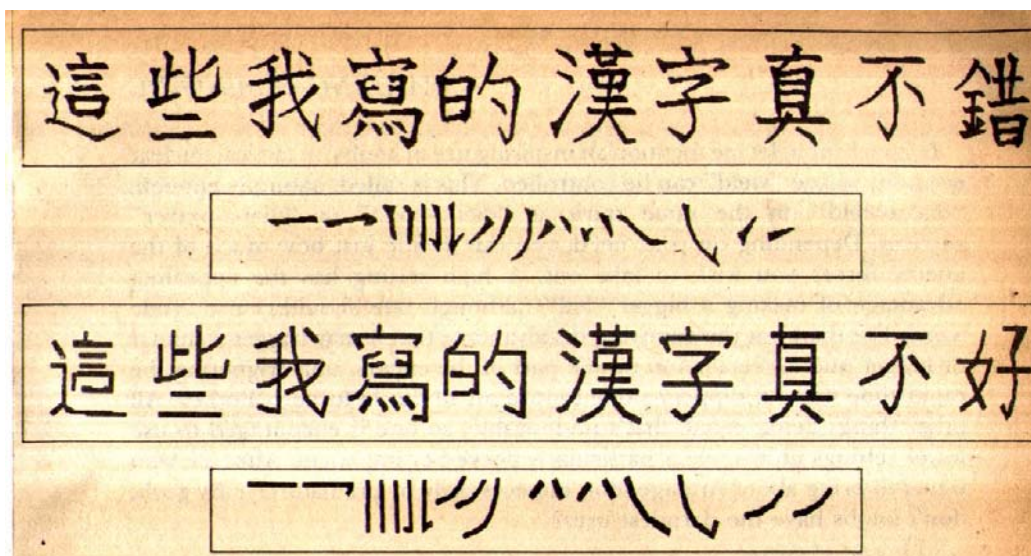 這些我寫的漢字真不錯
這些我寫的漢字真不好